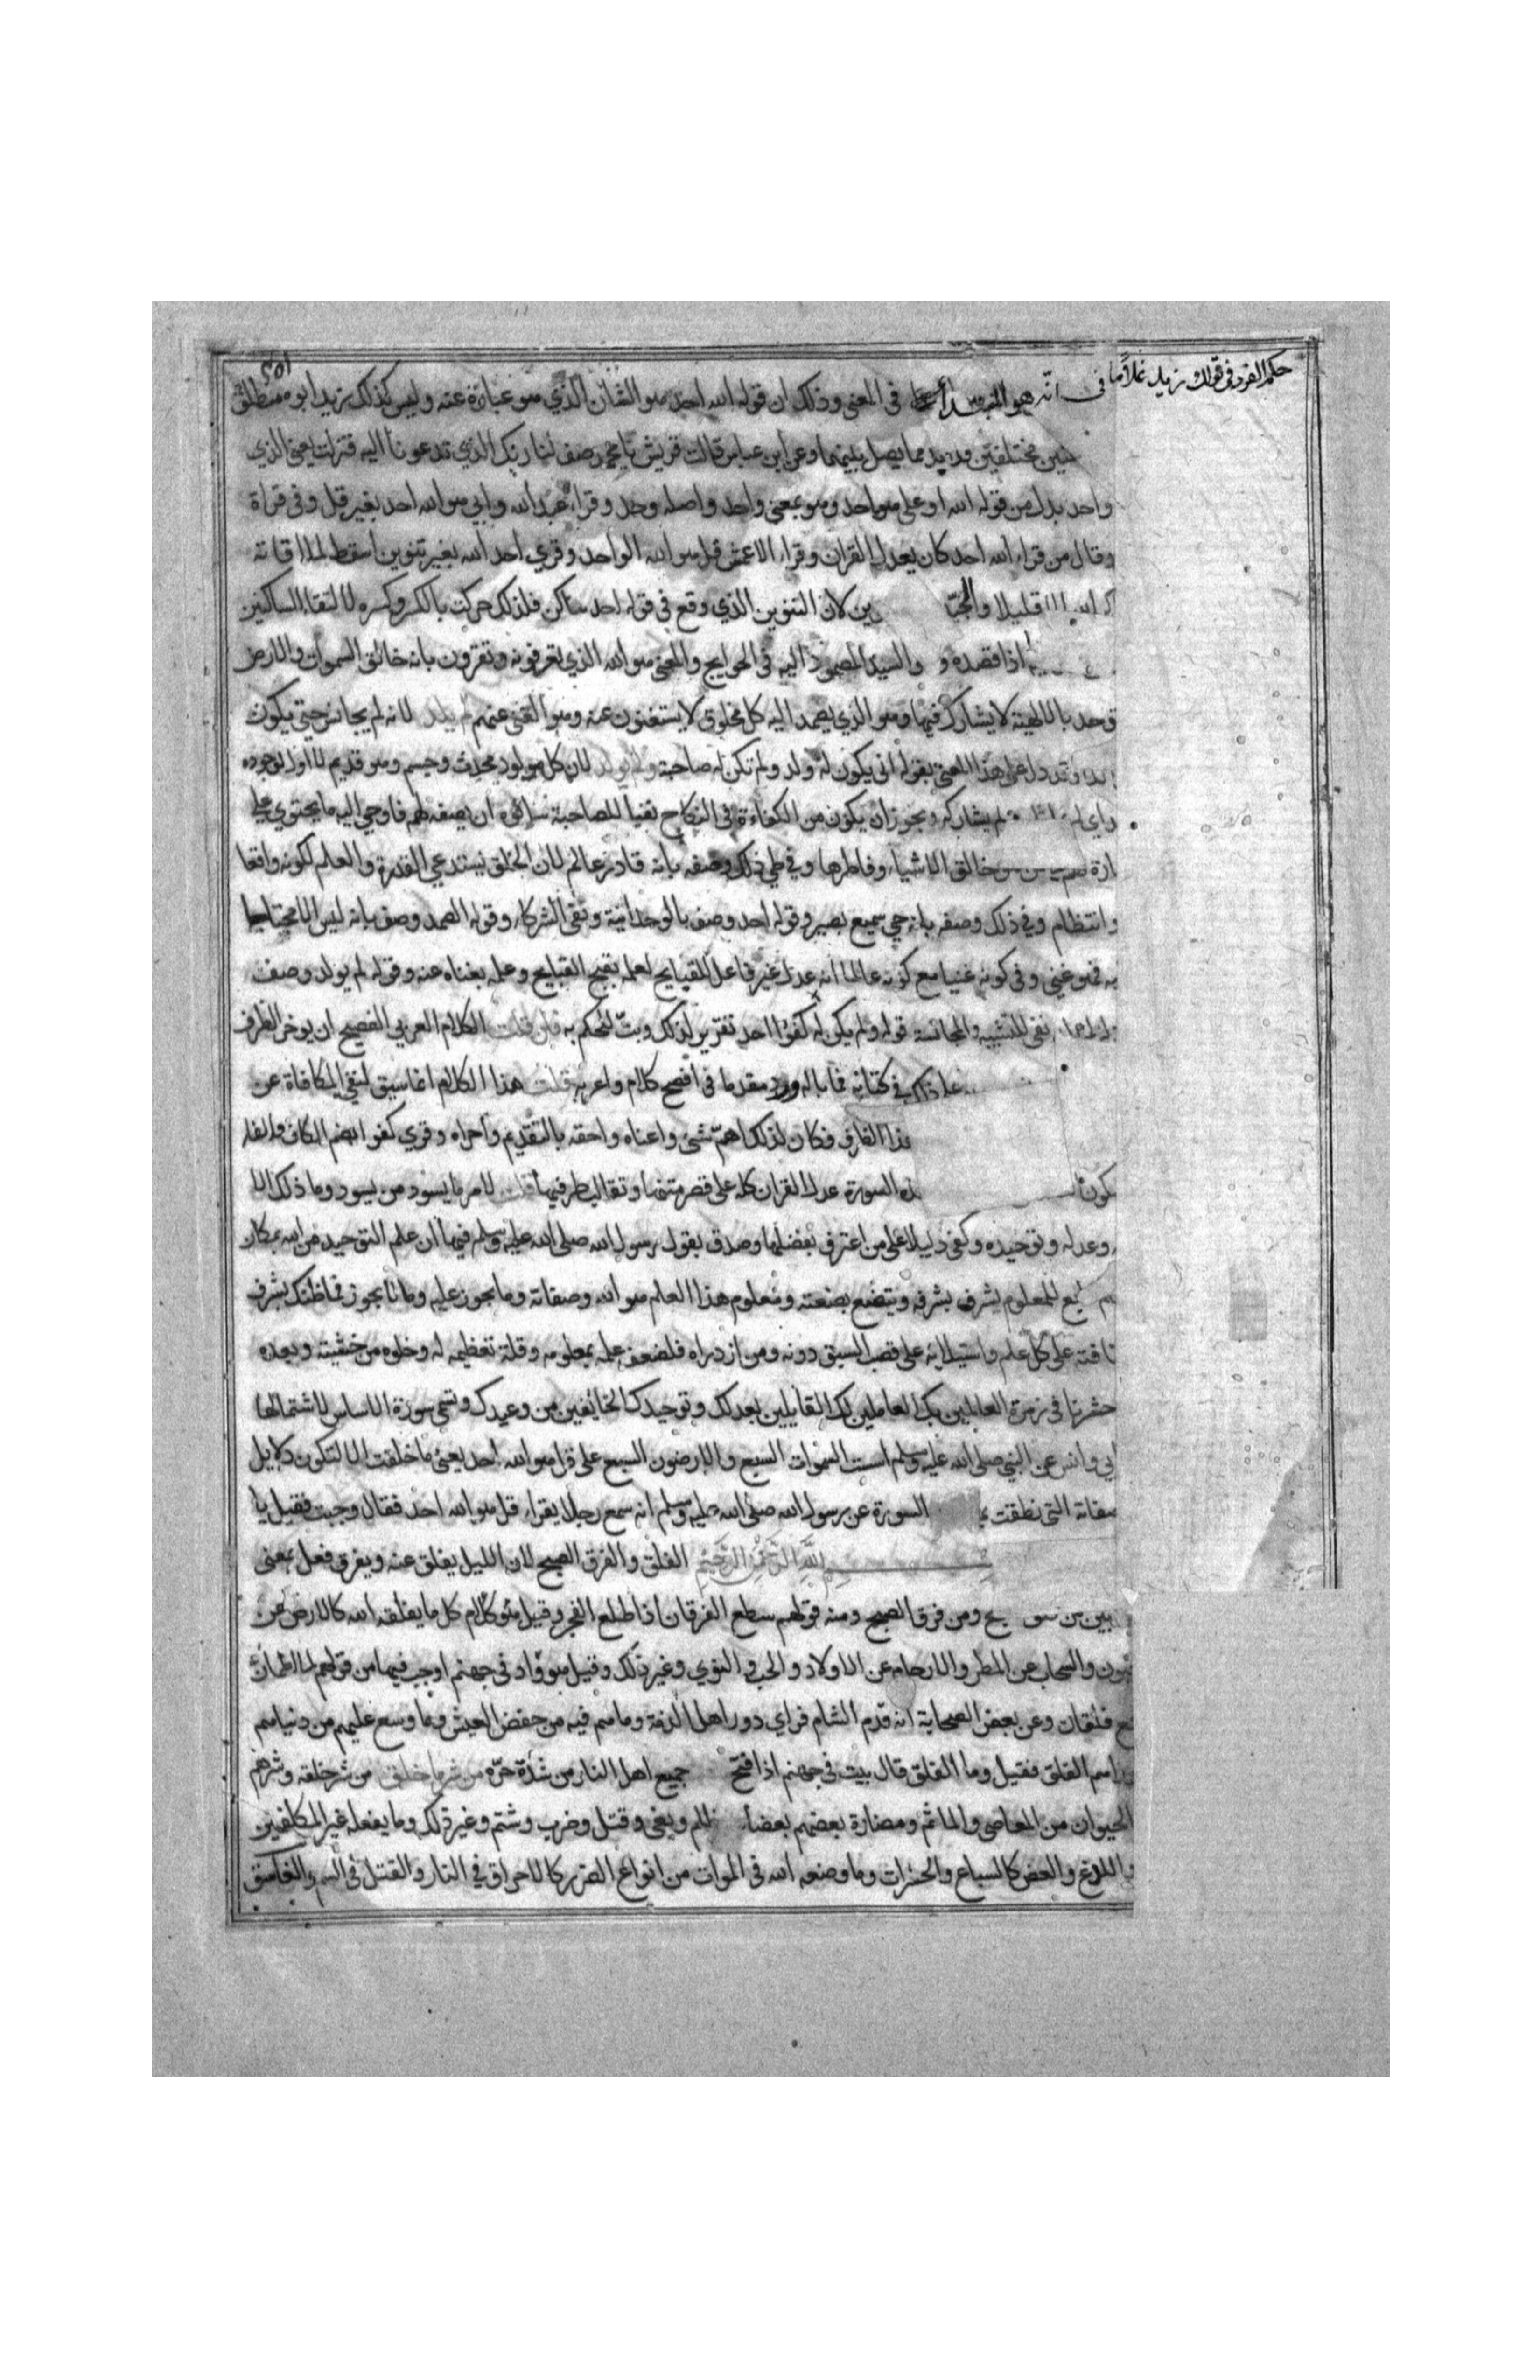 حكم المفرد فى قولك زيد غلامك فى انه هو المبتدأ فى المعنى وذلك ان قوله الله احد هو الشان الذي هو عبارة عنه وليس كذلك زيد ابوه منطلق
مختلفين مما يصل بينهما وعن ابن عباس قالت قريش يا محمد صف لنا ربك الذي تدعونا اليه فنزلت يعني الذي
واحد بدل من قوله الله او على هو احد وهو بمعنى واحد واصله وحد وقراء عبد الله وابي هو الله احد بغير قل وفى قراة
وقال من قراء الله احد كان يعدل القران وقراء الاعمش قل هو الله الواحد وقري احد الله بغير تنوين اسقط لملاقاته
قليلا والجيد لان التنوين الذي وقع فى قوله احد ساكن فلذلك حركت بالكسر وكسره لالتقاء الساكنين
اذا قصده و والسيد المصمود اليه فى الحوايج والمعنى هو الله الذي تعرفونه وتقرون بانه خالق السموات والارض
بالالهية لا يشارك فيها وهو الذي يصمد اليه كل مخلوق لا يستغنون عنه وهو الغنى عنهم لم يلد لانه لم يجانس حتى يكون
وقد دل على هذا المعنى بقوله انى يكون له ولد ولم تكن له صاحبة ولم يولد لان كل مولود محدث وجسم وهو قديم لا اول لوجوده
لم يشاركه ويجوز ان يكون من الكفاءة فى النكاح نفيا للصاحبة سالوه ان يصفه لهم فاوحي اليه ما يحتوي على
خالق الاشياء وفاطرها وفي طي ذلك وصفه بانه قادر عالم لان الخلق يستدعي القدرة والعلم لكونه واقعا
وانتظام وفي ذلك وصفه بانه حي سميع بصير وقوله احد وصف بالوحدانية ونفى الشركاء وقوله الصمد وصف بانه ليس الا محتاجا
فهو غني وفى كونه غنيا مع كونه عالما انه عدل غير فاعل للقبايح لعلمه بقبح القبايح وعلمه بغناه عنه وقوله لم يولد وصف
نفى للتشبيه والمجانسة قوله ولم يكن له كفوا احد تقرير لذلك وبت للحكم به فان قلت الكلام العربي الفصيح ان يوخر الظرف
فى كتابه فما باله ورد مقدما فى افصح كلام واعربه قلت هذا الكلام انما سيق لنفي المكافاة عن
الظرف فكان لذلك اهم شىء واعناه واحقه بالتقديم واحراه وقري كفوا بضم الكاف والفاء
السورة عدل القران كله على قصر متنها وتقارب طرفيها قلت لامر ما يسود من يسود وما ذلك الا
وعدله وتوحيده وكفى دليلا على من اعترف بفضلها وصدق بقول رسول الله صلى الله عليه وسلم فيها ان علم التوحيد من الله بمكان
للمعلوم يشرف بشرفه ويتضع بضعته ومعلوم هذا العلم هو الله وصفاته وما يجوز عليه وما لا يجوز فما ظنك بشرف
على كل علم واستيلائه على قصب السبق دونه ومن ازدراه فلضعف علمه بمعلومه وقلة تعظيمه له وخلوه من خشيته وبعده
حشرنا فى زمرة العالمين بك العاملين لك القايلين بعدلك وتوحيدك الخايفين من وعيدك وتسمى سورة الاساس لاشتمالها
ابي وانس عن النبي صلى الله عليه وسلم اسست السموات السبع والارضون السبع على قل هو الله احد يعني ما خلقت الا لتكون دلايل
صفاته التى نطقت السورة عن رسول الله صلى الله عليه وسلم انه سمع رجلا يقراء قل هو الله احد فقال وجبت فقيل يا
بسم الله الرحمن الرحيم الفلق والفرق الصبح لان الليل يفلق عنه ويفرق فعل بمعنى
ومن فرق الصبح ومنه قولهم سطع الفرقان اذا طلع الفجر وقيل هو كل ما يفلقه الله كالارض عن
والسحاب عن المطر والارحام عن الاولاد والحب والنوي وغير ذلك وقيل هو واد فى جهنم او جب فيها من قولهم لما اطمان
فلقان وعن بعض الصحابة انه قدم الشام فراي دور اهل الذمة وما هم فيه من خفض العيش وما وسع عليهم من دنياهم
الفلق فقيل وما الفلق قال بيت فى جهنم اذا فتح جميع اهل النار من شدة حره من شر ما خلق من شر خلقه وشرهم
الحيوان من المعاصي والماثم ومضارة بعضهم بعضا ظلم وبغى وقتل وضرب وشتم وغير ذلك وما يفعله غير المكلفين
واللدغ والعض كالسباع والحشرات وما وضعه الله فى الموات من انواع الضرر كالاحراق فى النار والقتل فى السم والغاسق